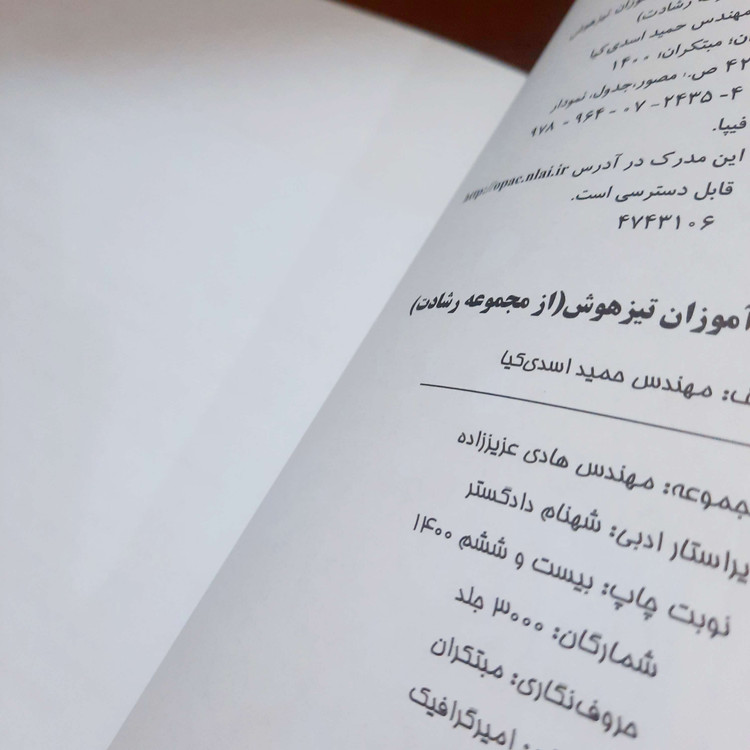 وزان تیزهوش
رشادت)
مهندس حمید اسدی‌کیا
مبتکران، ۱۴۰۰
۴۲ ص.: مصور، جدول، نمودار
۹۷۸ - ۹۶۴ - ۰۷ - ۲۴۳۵ - ۴
فیپا.
این مدرک در آدرس http://opac.nlai.ir
قابل دسترسی است.
۴۷۴۳۱۰۶
آموزان تیزهوش(از مجموعه رشادت)
ف: مهندس حمید اسدی‌کیا
جموعه: مهندس هادی عزیززاده
یراستار ادبی: شهنام دادگستر
نوبت چاپ: بیست و ششم ۱۴۰۰
شمارگان: ۳۰۰۰ جلد
حروف‌نگاری: مبتکران
: امیرگرافیک